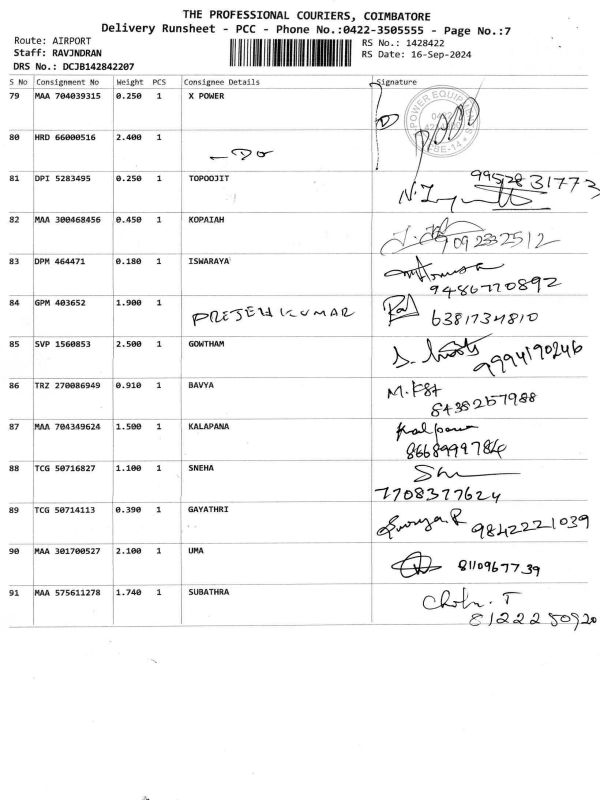 THE PROFESSIONAL COURIERS, COIMBATORE
Delivery Runsheet - PCC - Phone No.:0422-3505555 - Page No.:7
Route: AIRPORT
RS No.: 1428422
Staff: RAVJNDRAN
RS Date: 16-Sep-2024
DRS No.: DCJB142842207
S No Consignment No Weight PCS Consignee Details Signature
79 MAA 704039315 0.250 1 X POWER
POWER EQUIP
80 HRD 66000516 2.400 1
- Do
81 DPI 5283495 0.250 1 TOPOOJIT
9952831773
82 MAA 300468456 0.450 1 KOPAIAH
9092332512
83 DPM 464471 0.180 1 ISWARAYA
9486770892
84 GPM 403652 1.900 1
PREJEH KUMAR
6381734810
85 SVP 1560853 2.500 1 GOWTHAM
9994190246
86 TRZ 270086949 0.910 1 BAVYA
8438257988
87 MAA 704349624 1.500 1 KALAPANA
kalpana
8668999784
88 TCG 50716827 1.100 1 SNEHA
7708377624
89 TCG 50714113 0.390 1 GAYATHRI
Suriya.R 9842221039
90 MAA 301700527 2.100 1 UMA
8110967739
91 MAA 575611278 1.740 1 SUBATHRA
8122250920